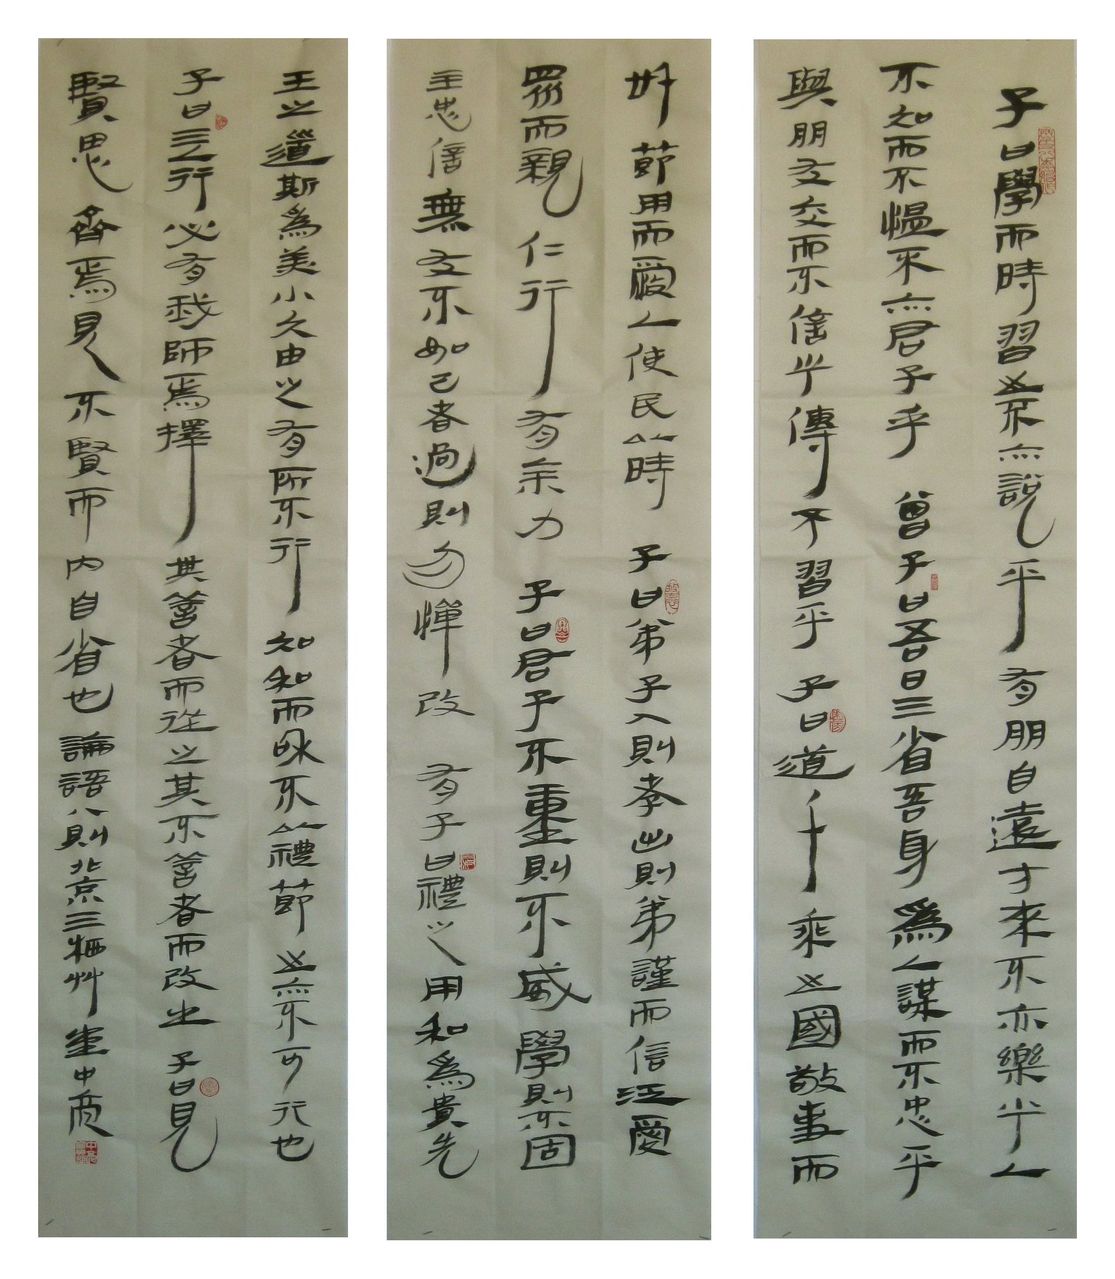 子曰學而時習之不亦說乎有朋自遠方來不亦樂乎人
不知而不慍不亦君子乎曾子曰吾日三省吾身為人謀而不忠乎
與朋友交而不信乎傳不習乎子曰道千乘之國敬事而
信節用而愛人使民以時子曰弟子入則孝出則弟謹而信泛愛
眾而親仁行有余力子曰君子不重則不威學則不固
主忠信無友不如己者過則勿憚改有子曰禮之用和為貴先
王之道斯為美小大由之有所不行知和而和不以禮節之亦不可行也
子曰三人行必有我師焉擇其善者而從之其不善者而改之子曰見
賢思齊焉見不賢而內自省也論語八則北京三栖艸堂中商